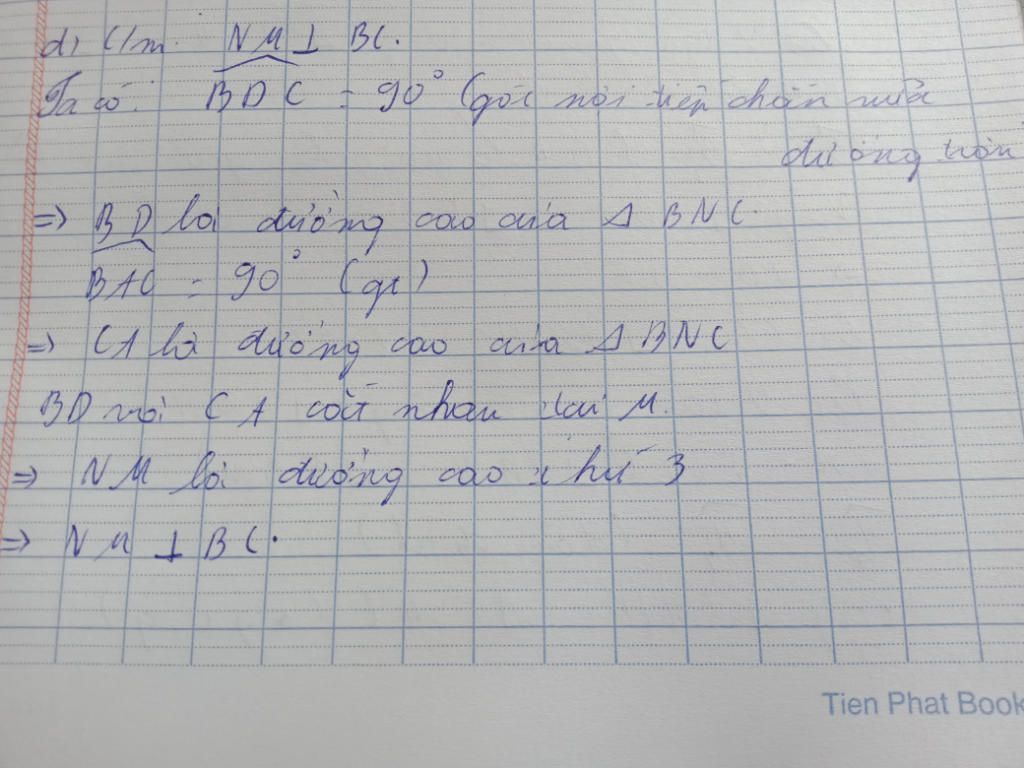 d, C/m. NM ⊥ BC.
Ta có: BDC = 90° (góc nội tiếp chắn nửa
đường tròn
=> BD là đường cao của Δ BNC.
BAC = 90° (gt)
=> CA là đường cao của Δ BNC
BD với CA cắt nhau tại M.
=> NM là đường cao thứ 3
=> NM ⊥ BC.
Tien Phat Book